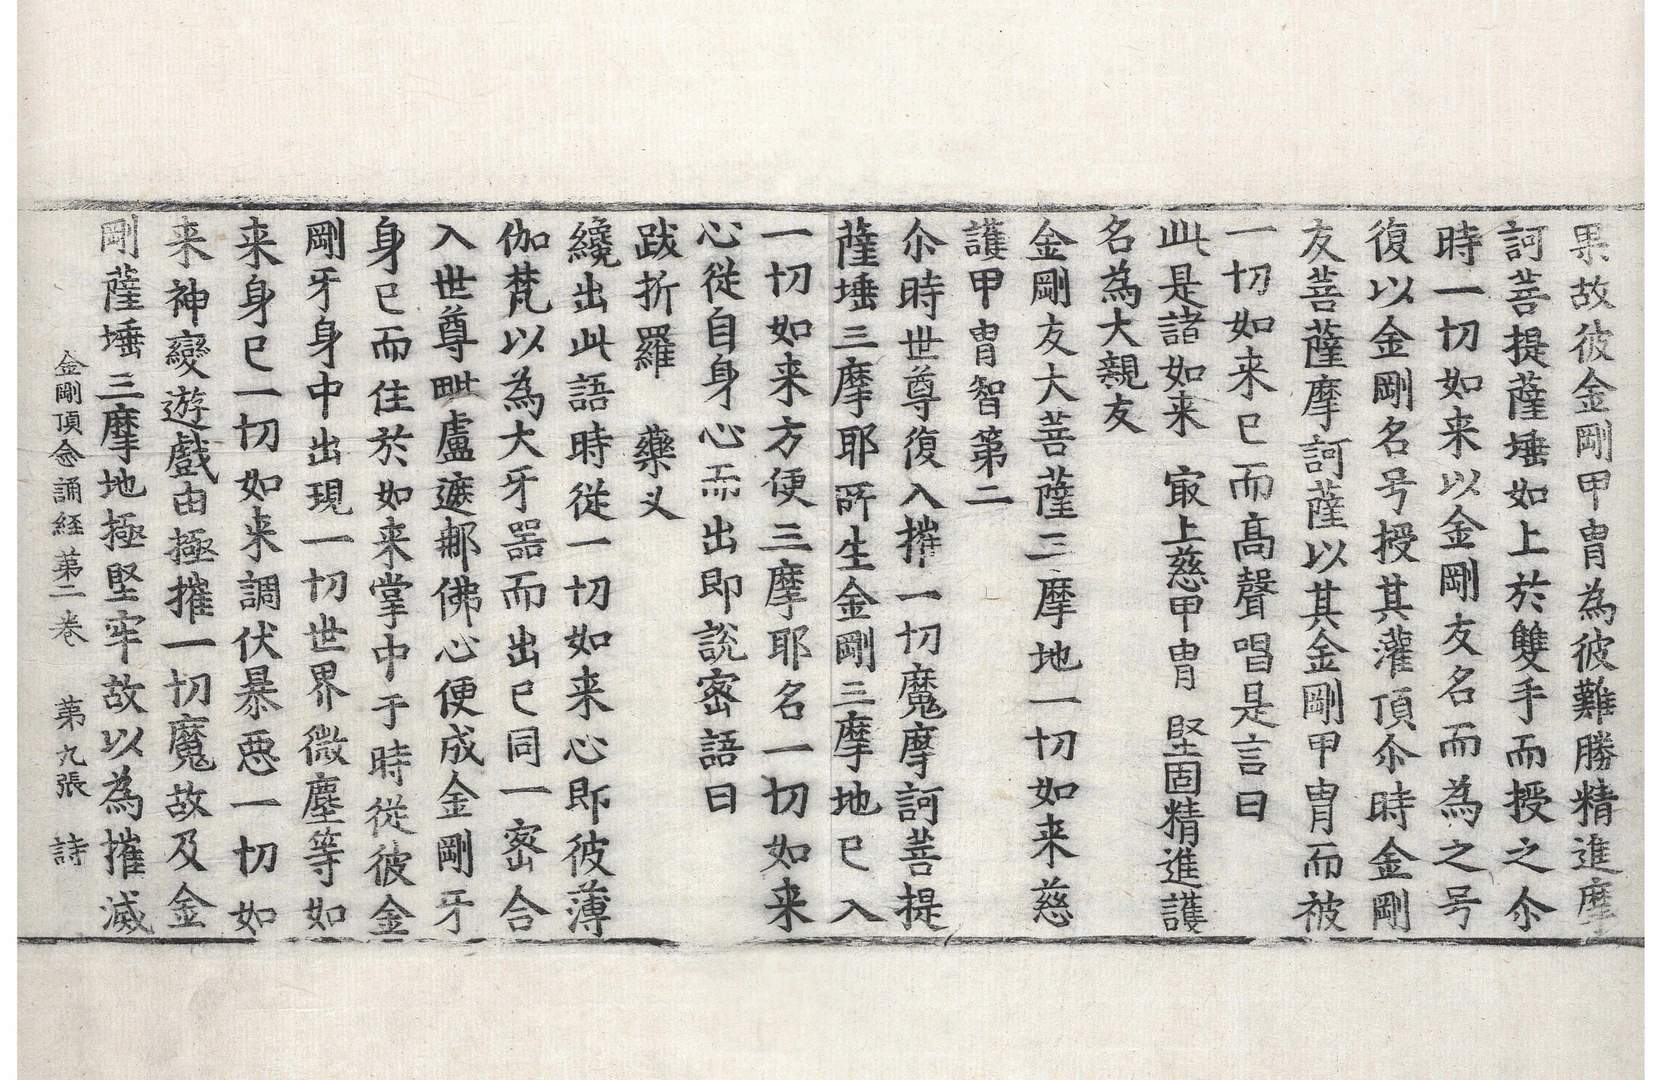 果故彼金剛甲冑為彼難勝精進摩
訶菩提薩埵如上於雙手而授之尒
時一切如来以金剛友名而為之号
復以金剛名号授其灌頂尒時金剛
友菩薩摩訶薩以其金剛甲冑而被
一切如来已而高聲唱是言曰
此是諸如来　㝡上慈甲冑　堅固精進護
名為大親友
金剛友大菩薩三摩地一切如来慈
護甲冑智第二
尒時世尊復入摧一切魔摩訶菩提
薩埵三摩耶所生金剛三摩地已入
一切如来方便三摩耶名一切如来
心從自身心而出即說密語曰
跋折羅　藥义
纔出此語時從一切如来心即彼薄
伽梵以為大牙器而出已同一密合
入世尊毗盧遮那佛心便成金剛牙
身已而住於如来掌中于時從彼金
剛牙身中出現一切世界微塵等如
来身已一切如来調伏暴惡一切如
来神變遊戲由極摧一切魔故及金
剛薩埵三摩地極堅牢故以為摧滅
金剛頂念誦経第二卷　第九張　詩